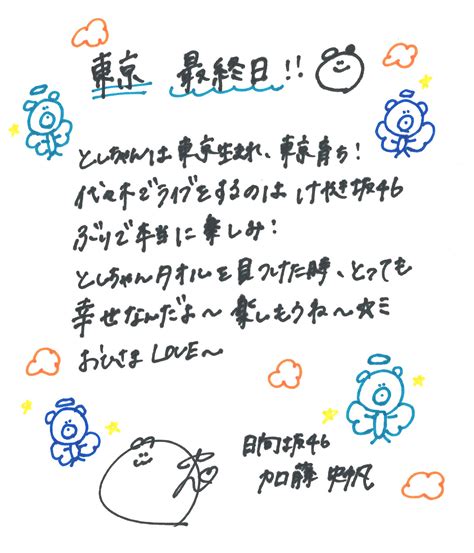 東京 最終日!!
としちゃんは東京生まれ、東京育ち!
代々木でライブをするのは けやき坂46
ぶりで本当に楽しみ!
としちゃんタオルを見つけた時、とっても
幸せなんだよ〜 楽しもうね〜☆ミ
おひさま LOVE〜
日向坂46
加藤 史帆